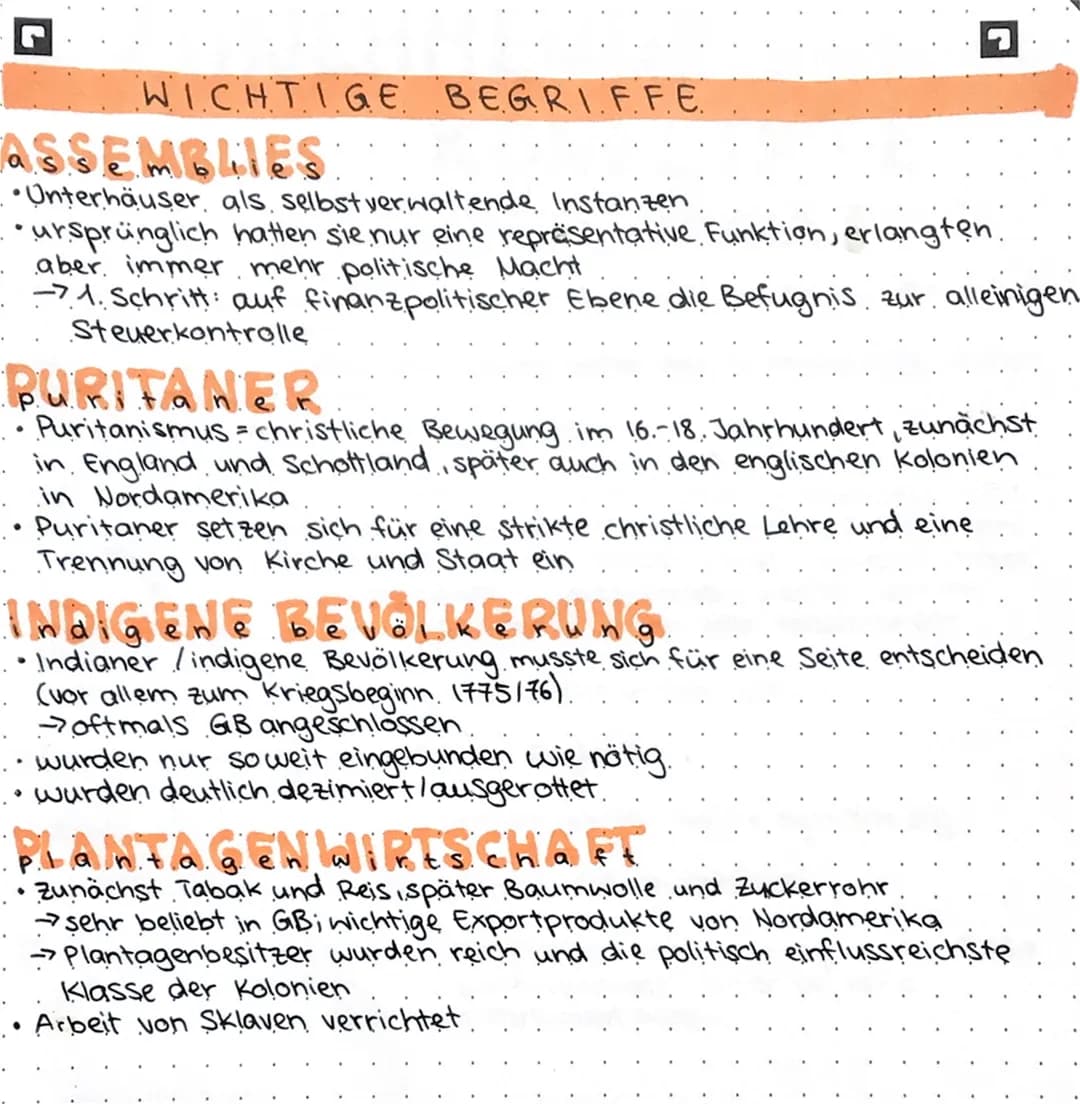 WICHTIGE BEGRIFFE
ASSEMBLIES
assemblies
• Unterhäuser als selbstverwaltende Instanzen
• ursprünglich hatten sie nur eine repräsentative Funktion, erlangten
aber immer mehr politische Macht
→ 1. Schritt: auf finanzpolitischer Ebene die Befugnis zur alleinigen
Steuerkontrolle
PURITANER
puritaner
• Puritanismus = christliche Bewegung im 16.-18. Jahrhundert, zunächst
in England und Schottland, später auch in den englischen Kolonien
in Nordamerika
• Puritaner setzen sich für eine strikte christliche Lehre und eine
Trennung von Kirche und Staat ein
INDIGENE BEVÖLKERUNG
indigene bevölkerung
• Indianer / indigene Bevölkerung musste sich für eine Seite entscheiden
(vor allem zum Kriegsbeginn 1775/76)
→ oftmals GB angeschlossen
• wurden nur soweit eingebunden wie nötig
• wurden deutlich dezimiert/ausgerottet
PLANTAGENWIRTSCHAFT
plantagenwirtschaft
• zunächst Tabak und Reis, später Baumwolle und Zuckerrohr
→ sehr beliebt in GB; wichtige Exportprodukte von Nordamerika
→ Plantagenbesitzer wurden reich und die politisch einflussreichste
Klasse der Kolonien
• Arbeit von Sklaven verrichtet